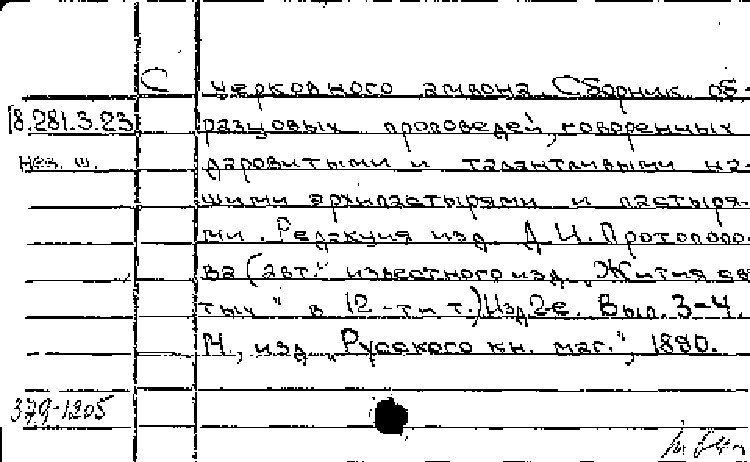 С церковного амвона. Сборник об-
18.281.3.23 разцовых проповедей, говоренных
даровитыми и талантливыми на-
шими архипастырями и пастыря-
ми. Редакция изд. Протопопо-
ва (авт. " известного изд. „Жития свя
тых" в 12-ти т.) Изд 2е. Вып. 3-4.
М., изд. „Русского кн. маг.", 1890.
379-1205